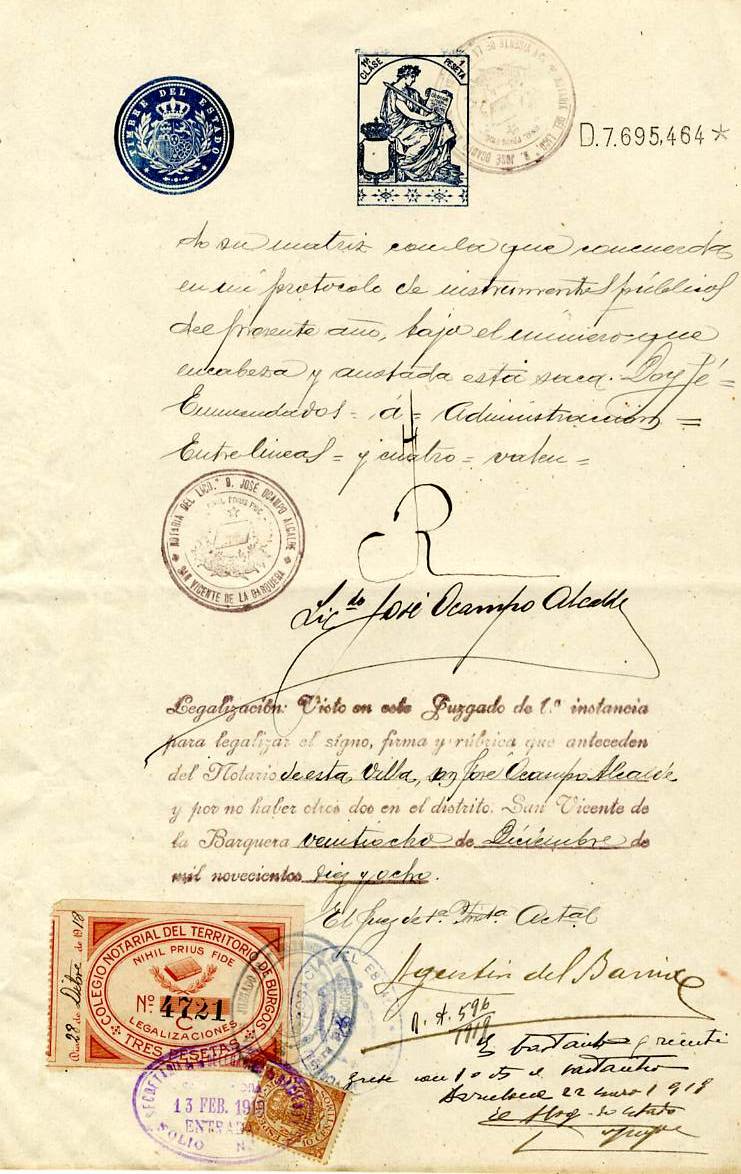 TIMBRE DEL ESTADO
1ª CLASE 1 PESETA
D.7.695,464*
de su matriz con la que concuerda
en mi protocolo de instrumentos públicos
del presente año, bajo el número que
encabeza y anotada esta saca. Doy fé=
Enmendados= á= Administración=
Entre lineas= y cuatro= valen=
NOTARIA DEL LICDO. D. JOSÉ OCAMPO ALCALDE
NIHIL PRIUS FIDE
SAN VICENTE DE LA BARQUERA
Licdo José Ocampo Alcalde
Legalización: Visto en este Juzgado de 1.ª instancia
para legalizar el signo, firma y rúbrica que anteceden
del Notario de esta Villa, Don José Ocampo Alcalde
y por no haber otros dos en el distrito. San Vicente de
la Barquera veintiocho de Diciembre de
mil novecientos diez y ocho.
El Juez de 1ª Instª Actal
Agustin del Barrio
28 de Dibre de 1918
COLEGIO NOTARIAL DEL TERRITORIO DE BURGOS
NIHIL PRIUS FIDE
Nº 4721
C
LEGALIZACIONES
TRES PESETAS
ABOGACIA DEL ESTADO
R. A. 596
1918
Es bastante
bastanteo
22 enero 191
13 FEB. 191
ENTRADA
FOLIO N.
10 CENT